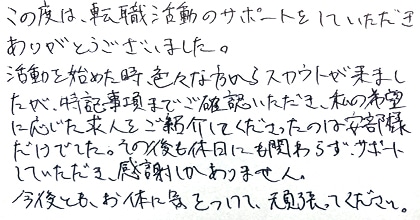 この度は、転職活動のサポートをしていただき
ありがとうございました。
活動を始めた時、色々な方からスカウトが来まし
たが、特記事項までご確認いただき、私の希望
に応じた求人をご紹介してくださったのは安部様
だけでした。その後も休日にも関わらず、サポート
していただき、感謝しかありません。
今後とも、お体に気をつけて、頑張ってください。